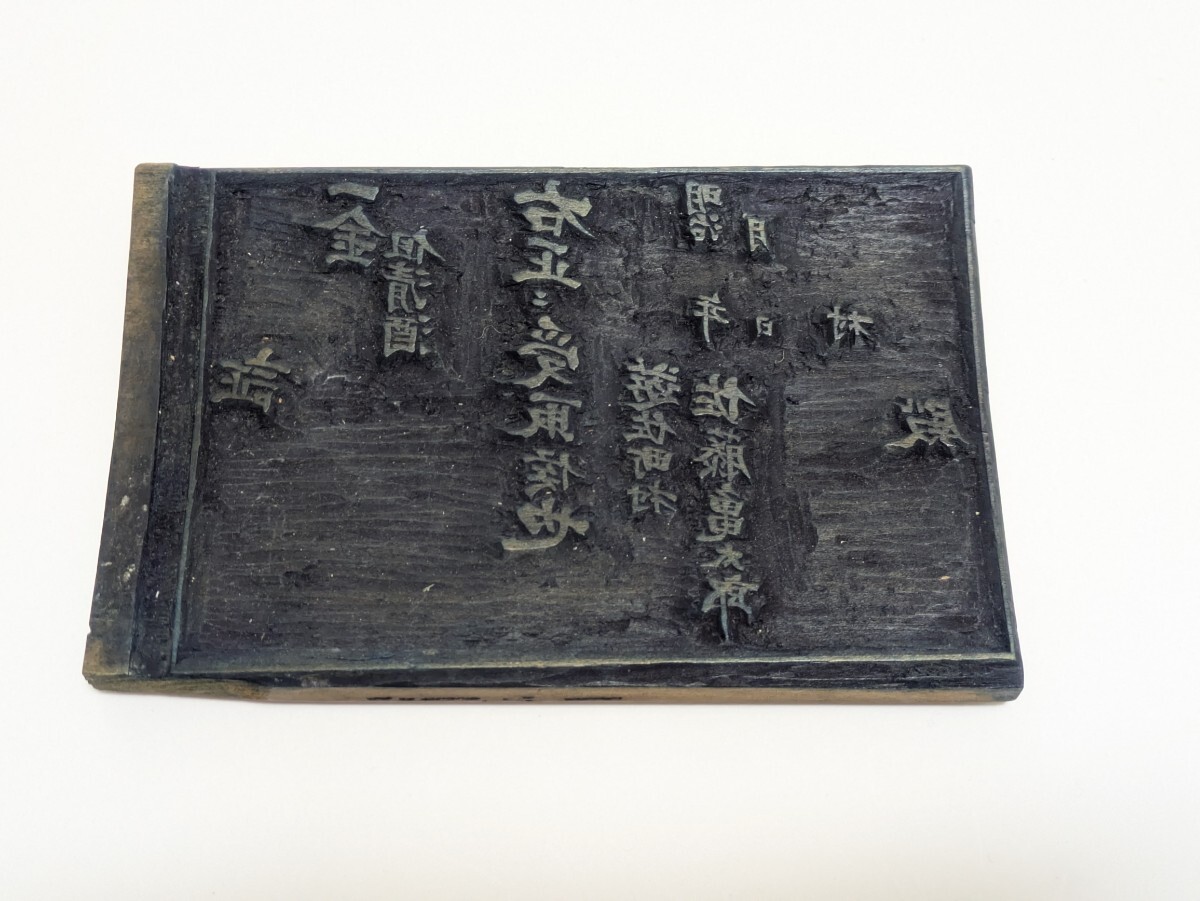 証
一金
但清酒
右正ニ受取候也
明治 年
月 日
遊佐町村
佐藤亀太郎
村
殿